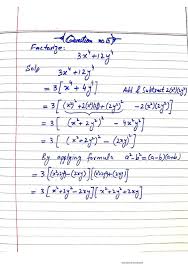 Question no 5
Factorize:
3x⁴+12y⁴
Solp
3x⁴+12y⁴
= 3[x⁴+4y⁴] Add & Subtract 2(x²)(2y²)
= 3[(x²)²+2(x²)(2y²)+(2y²)² -2(x²)(2y²)]
= 3[(x²+2y²)² - 4x²y²]
= 3[(x²+2y²)² - (2xy)²]
By applying formula a²-b²=(a-b)(a+b)
= 3[(x²+2y²)-(2xy)][(x²+2y²)+(2xy)]
= 3[x²+2y²-2xy][x²+2y²+2xy]